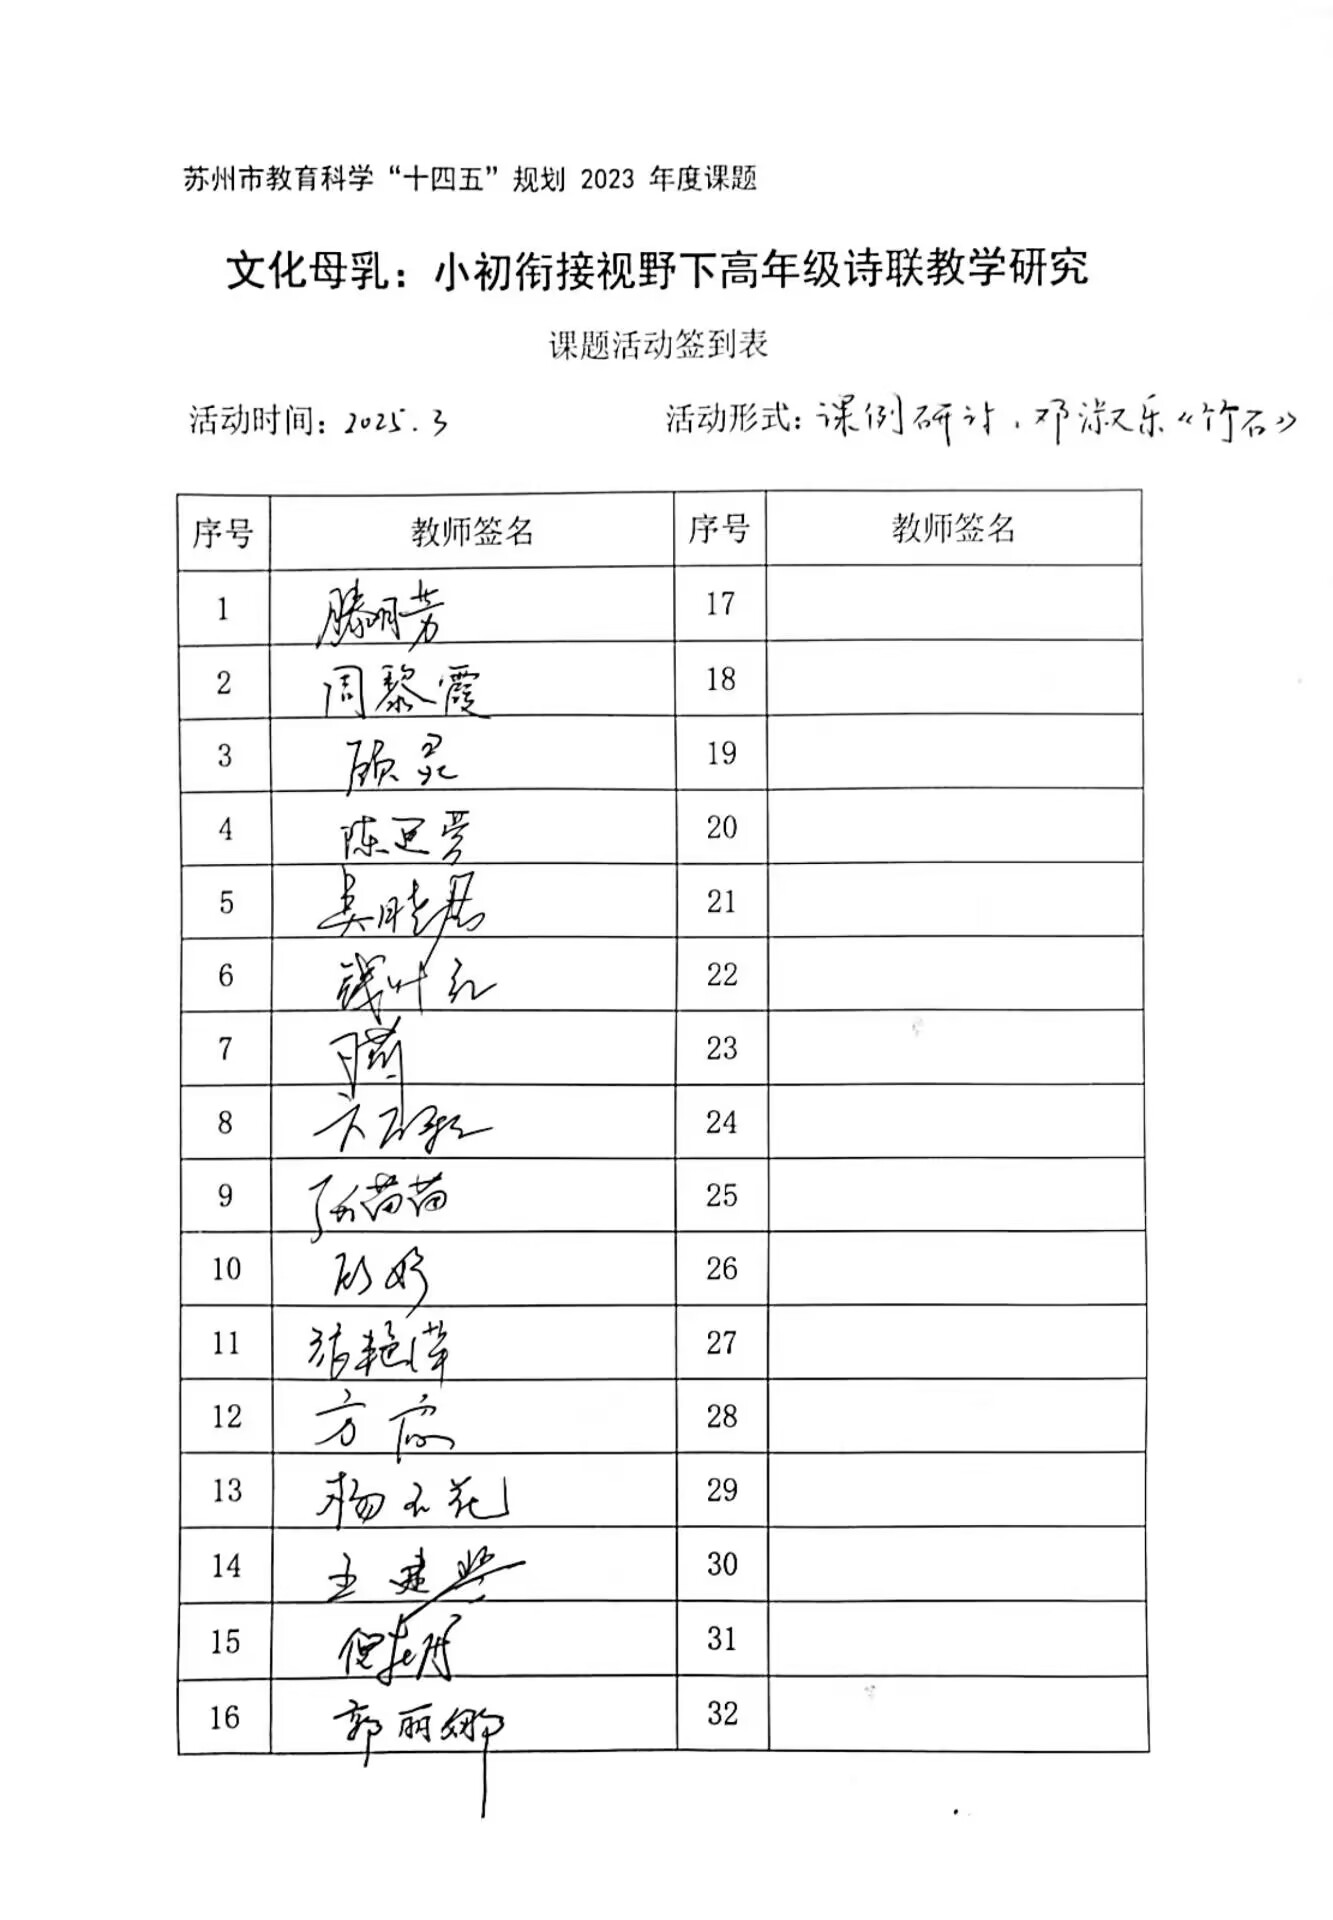 苏州市教育科学“十四五”规划 2023 年度课题
文化母乳：小初衔接视野下高年级诗联教学研究
课题活动签到表
活动时间：2025.3 活动形式：课例研讨，邓淑乐《竹石》
序号 教师签名 序号 教师签名
1 滕明芳 17
2 周黎霞 18
3 顾灵 19
4 陈 20
5 吴晓君 21
6 钱叶红 22
7 23
8 24
9 张苗苗 25
10 顾婷 26
11 张艳萍 27
12 方 28
13 杨 花 29
14 王建 30
15 倪 31
16 郭丽娜 32